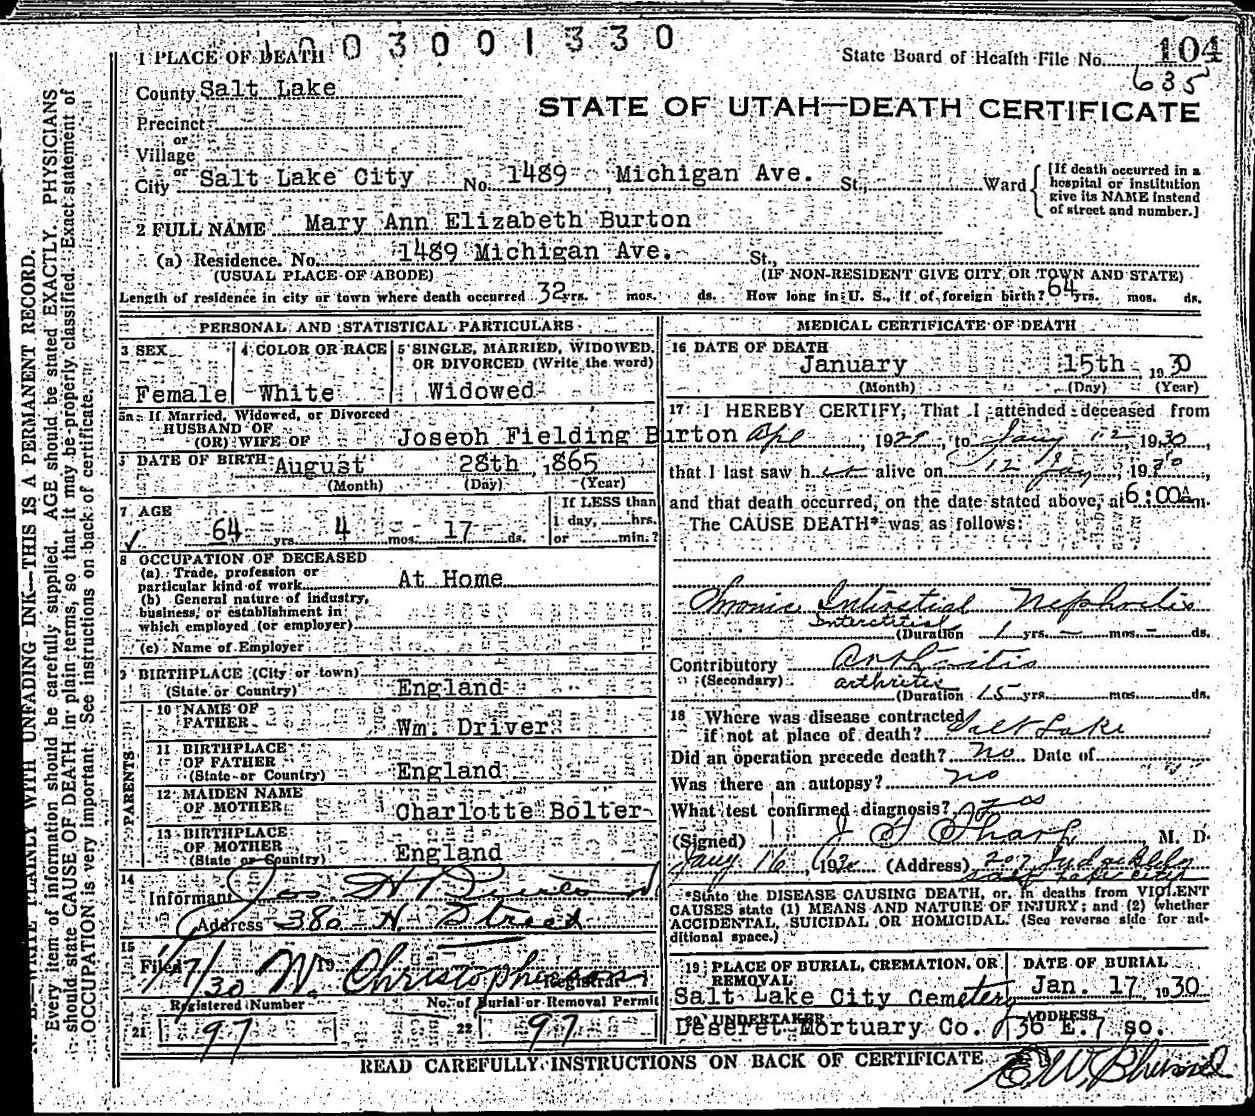 1003001330
State Board of Health File No. 104
635
1 PLACE OF DEATH
County Salt Lake
STATE OF UTAH—DEATH CERTIFICATE
Precinct
or
Village
or
City Salt Lake City No. 1489 Michigan Ave. St., Ward
[If death occurred in a hospital or institution give its NAME instead of street and number.]
2 FULL NAME Mary Ann Elizabeth Burton
(a) Residence. No. 1489 Michigan Ave. St.,
(USUAL PLACE OF ABODE) (IF NON-RESIDENT GIVE CITY OR TOWN AND STATE)
Length of residence in city or town where death occurred 32 yrs. mos. ds. How long in U. S., if of foreign birth? 64 yrs. mos. ds.
PERSONAL AND STATISTICAL PARTICULARS
3 SEX
Female
4 COLOR OR RACE
White
5 SINGLE, MARRIED, WIDOWED, OR DIVORCED (Write the word)
Widowed
5a If Married, Widowed, or Divorced
HUSBAND OF
(OR) WIFE OF Joseph Fielding Burton
6 DATE OF BIRTH August 28th, 1865
(Month) (Day) (Year)
7 AGE
64 yrs. 4 mos. 17 ds.
If LESS than
1 day, hrs.
or min.?
8 OCCUPATION OF DECEASED
(a) Trade, profession or
particular kind of work At Home
(b) General nature of industry,
business, or establishment in
which employed (or employer)
(c) Name of Employer
9 BIRTHPLACE (City or town)
(State or Country) England
PARENTS
10 NAME OF
FATHER Wm. Driver
11 BIRTHPLACE
OF FATHER
(State or Country) England
12 MAIDEN NAME
OF MOTHER Charlotte Bolter
13 BIRTHPLACE
OF MOTHER
(State or Country) England
14
Informant Jos H
Address 380 - N. Street
15
Filed 1/17/30 19 W. Christopherson
Registrar
Registered Number
21 97
No. of Burial or Removal Permit
22 97
MEDICAL CERTIFICATE OF DEATH
16 DATE OF DEATH
January 15th 1930
(Month) (Day) (Year)
17 I HEREBY CERTIFY, That I attended deceased from
, to Jany 12 1930,
that I last saw her alive on 12 Jany, 1930
and that death occurred, on the date stated above, at 6:00A m.
The CAUSE DEATH* was as follows:
Chronic Intirstial Nephritis
Interstitial
(Duration 1 yrs. — mos. — ds.
Contributory Arthritis
(Secondary) arthritis
(Duration 15 yrs. mos. ds.
18 Where was disease contracted
if not at place of death? Salt Lake
Did an operation precede death? No Date of
Was there an autopsy? no
What test confirmed diagnosis?
(Signed) Sharp M. D.
Jany 16, 1930 (Address) 207 Judge Bldg
Salt Lake City
*State the DISEASE CAUSING DEATH, or, in deaths from VIOLENT
CAUSES state (1) MEANS AND NATURE OF INJURY; and (2) whether
ACCIDENTAL, SUICIDAL OR HOMICIDAL. (See reverse side for ad-
ditional space.)
19 PLACE OF BURIAL, CREMATION, OR
REMOVAL
Salt Lake City Cemetery
DATE OF BURIAL
Jan. 17, 1930
20 UNDERTAKER
Deseret Mortuary Co.
ADDRESS
36 E. 7 so.
READ CAREFULLY INSTRUCTIONS ON BACK OF CERTIFICATE
WRITE PLAINLY WITH UNFADING INK—THIS IS A PERMANENT RECORD.
Every item of information should be carefully supplied. AGE should be stated EXACTLY. PHYSICIANS
should state CAUSE OF DEATH in plain terms, so that it may be properly classified. Exact statement of
OCCUPATION is very important. See instructions on back of certificate.